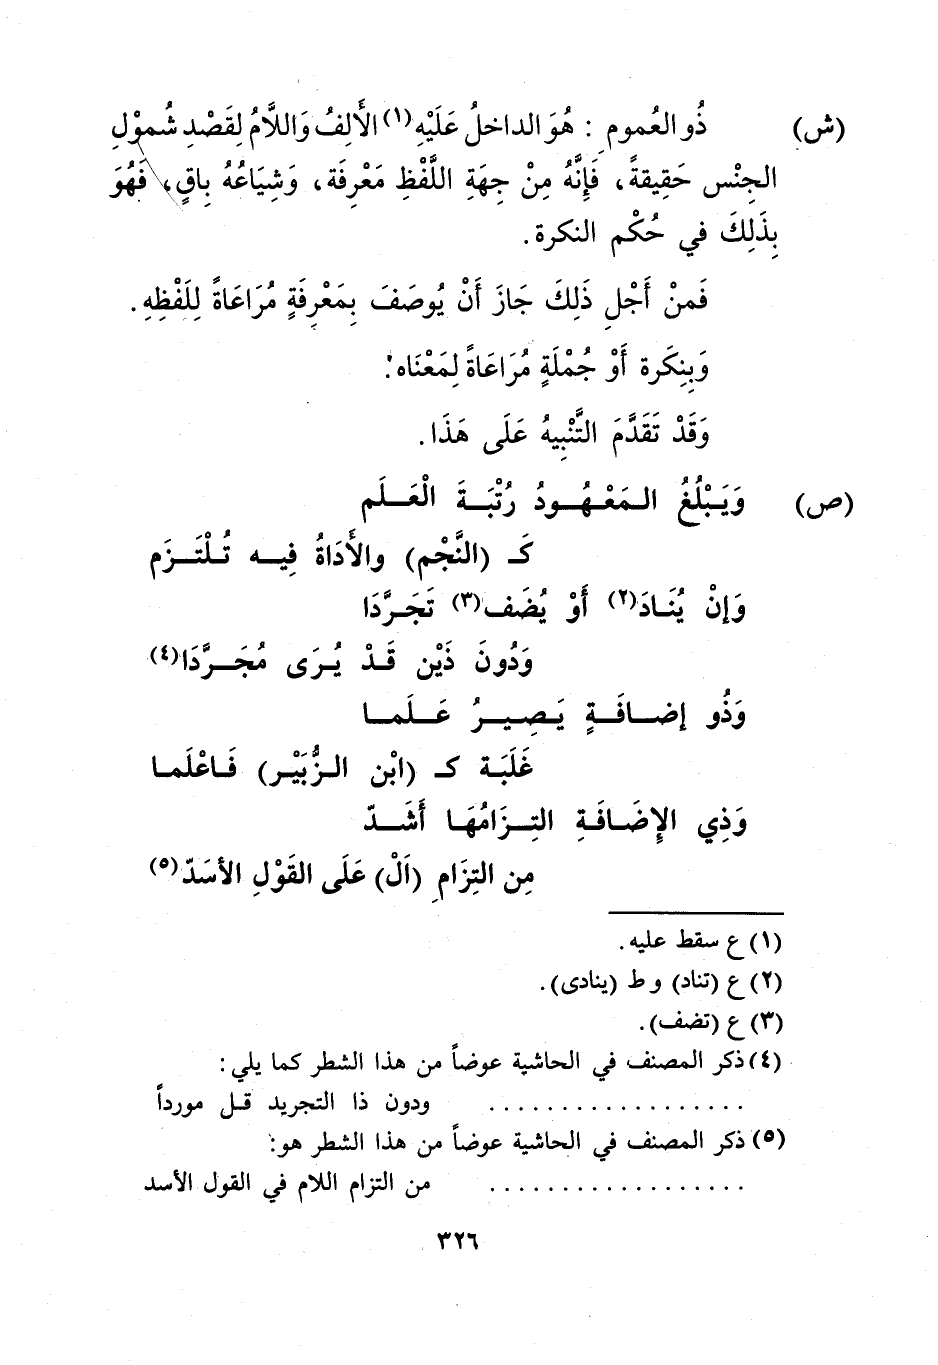 (ش) ذُو العُمومِ : هُوَ الداخلُ عَلَيْهِ(١) الأَلِفُ وَاللَّامُ لِقَصْدِ شُمُوْلِ
الجِنْس حَقِيقةً، فَإِنَّهُ مِنْ جِهَةِ اللَّفْظِ مَعْرِفَة، وَشِيَاعُهُ بِاقٍ، فَهُوَ
بِذَلِكَ في حُكْم النكرة.
فَمنْ أَجْلِ ذَلِكَ جَازَ أَنْ يُوصَفَ بِمَعْرِفَةٍ مُرَاعَاةً لِلَفْظِهِ.
وَبِنِكَرة أَوْ جُمْلَةٍ مُرَاعَاةً لِمَعْنَاه.
وَقَدْ تَقَدَّمَ التَّنْبِيهُ عَلَى هَذَا.
(ص) وَيَبْلُغُ المَعْهُودُ رُتْبَةَ الْعَلَم
كَـ (النَّجْم) والأَدَاةُ فِيه تُلْتَزَم
وَإِنْ يُنَادَ(٢) أَوْ يُضَف(٣) تَجَرَّدَا
وَدُونَ ذَيْن قَدْ يُرَى مُجَرَّدَا(٤)
وَذُو إضافَةٍ يَصِيرُ عَلَما
غَلَبَة كـ (ابْن الزُّبَيْر) فَاعْلَما
وَذِي الإِضَافَةِ التِزَامُهَا أَشَدّ
مِن التِزَامِ (اَلْ) عَلَى القَوْلِ الأسَدّ(٥)
(١) ع سقط عليه.
(٢) ع (تناد) وط (ينادى).
(٣) ع (تضف).
(٤) ذكر المصنف في الحاشية عوضاً من هذا الشطر كما يلي:
. . . . . . . . . . . . . . . . . . ودون ذا التجريد قل مورداً
(٥) ذكر المصنف في الحاشية عوضاً من هذا الشطر هو:
. . . . . . . . . . . . . . . . . . من التزام اللام في القول الأسد
٣٢٦